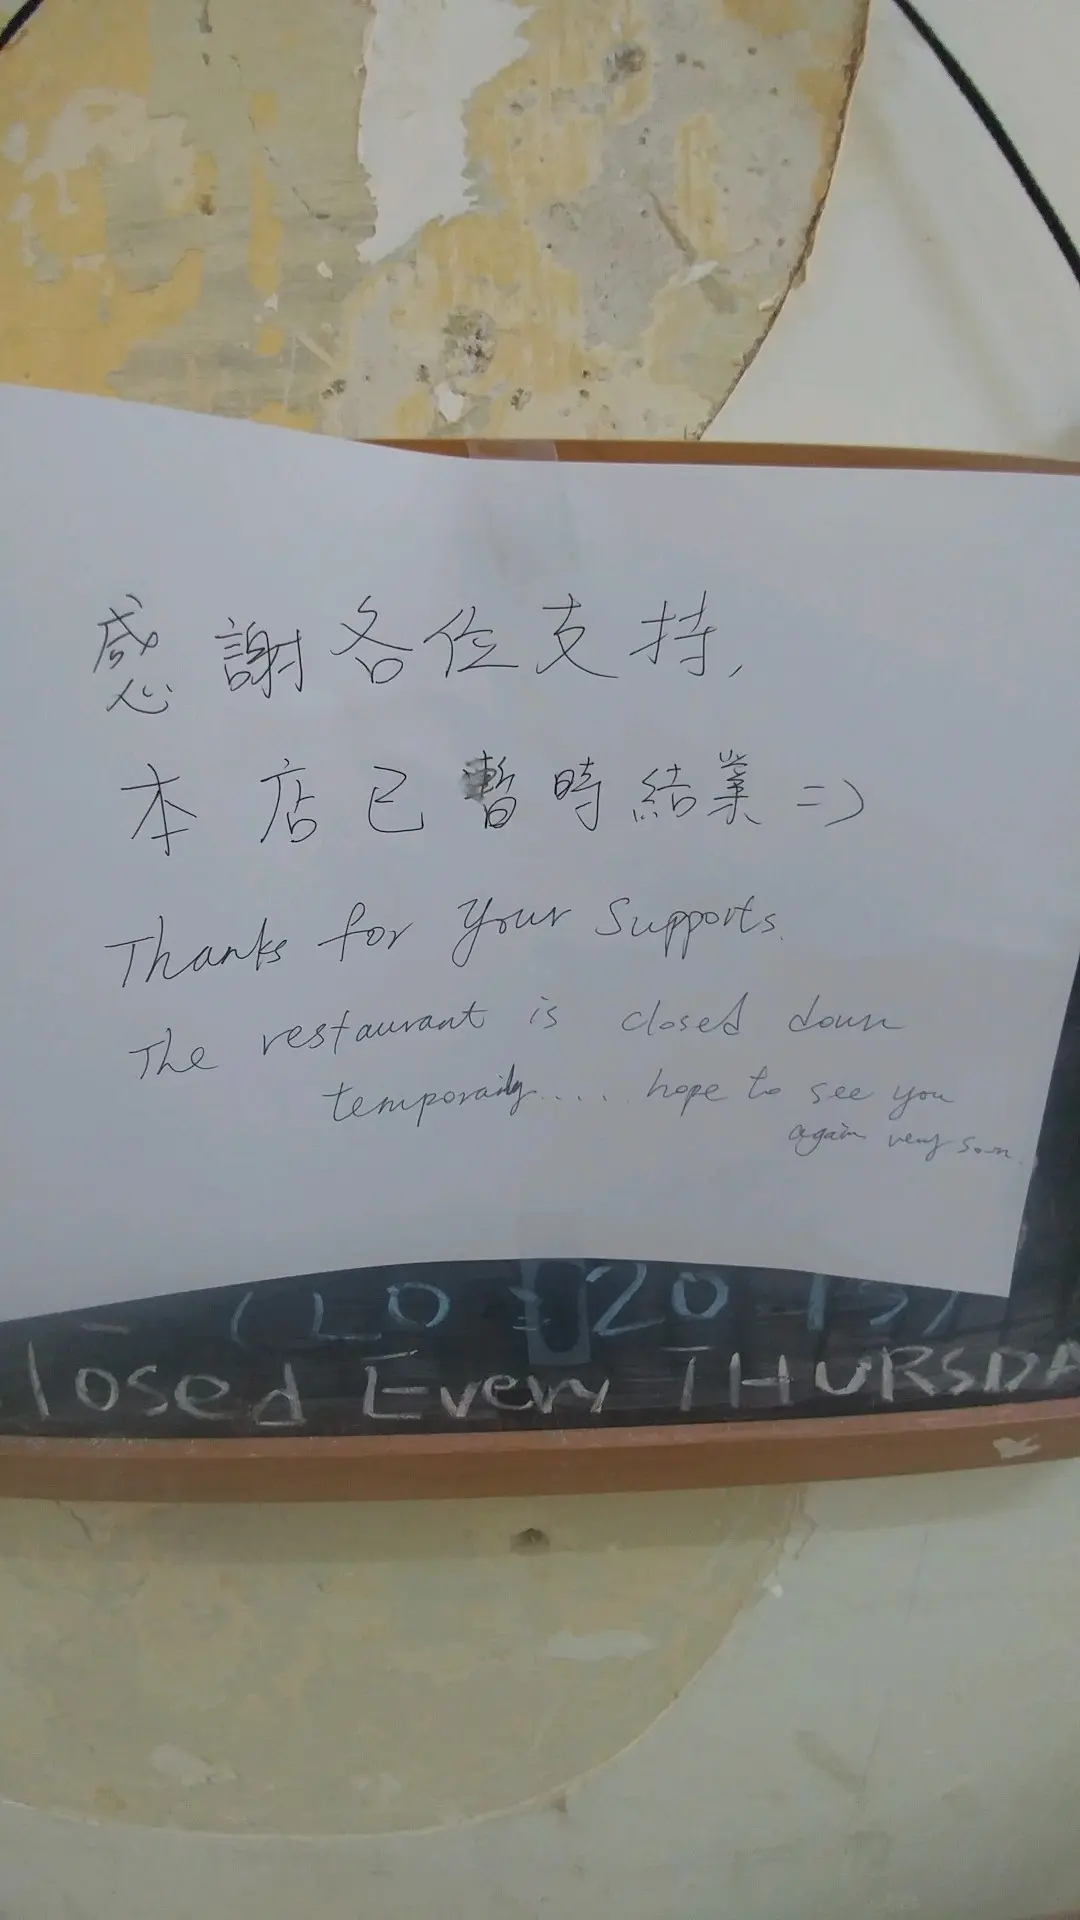 感謝各位支持,
本店已暫時結業=)
Thanks for your supports.
The restaurant is closed down
temporaily.... hope to see you
again very soon.
losed Every THURSDA